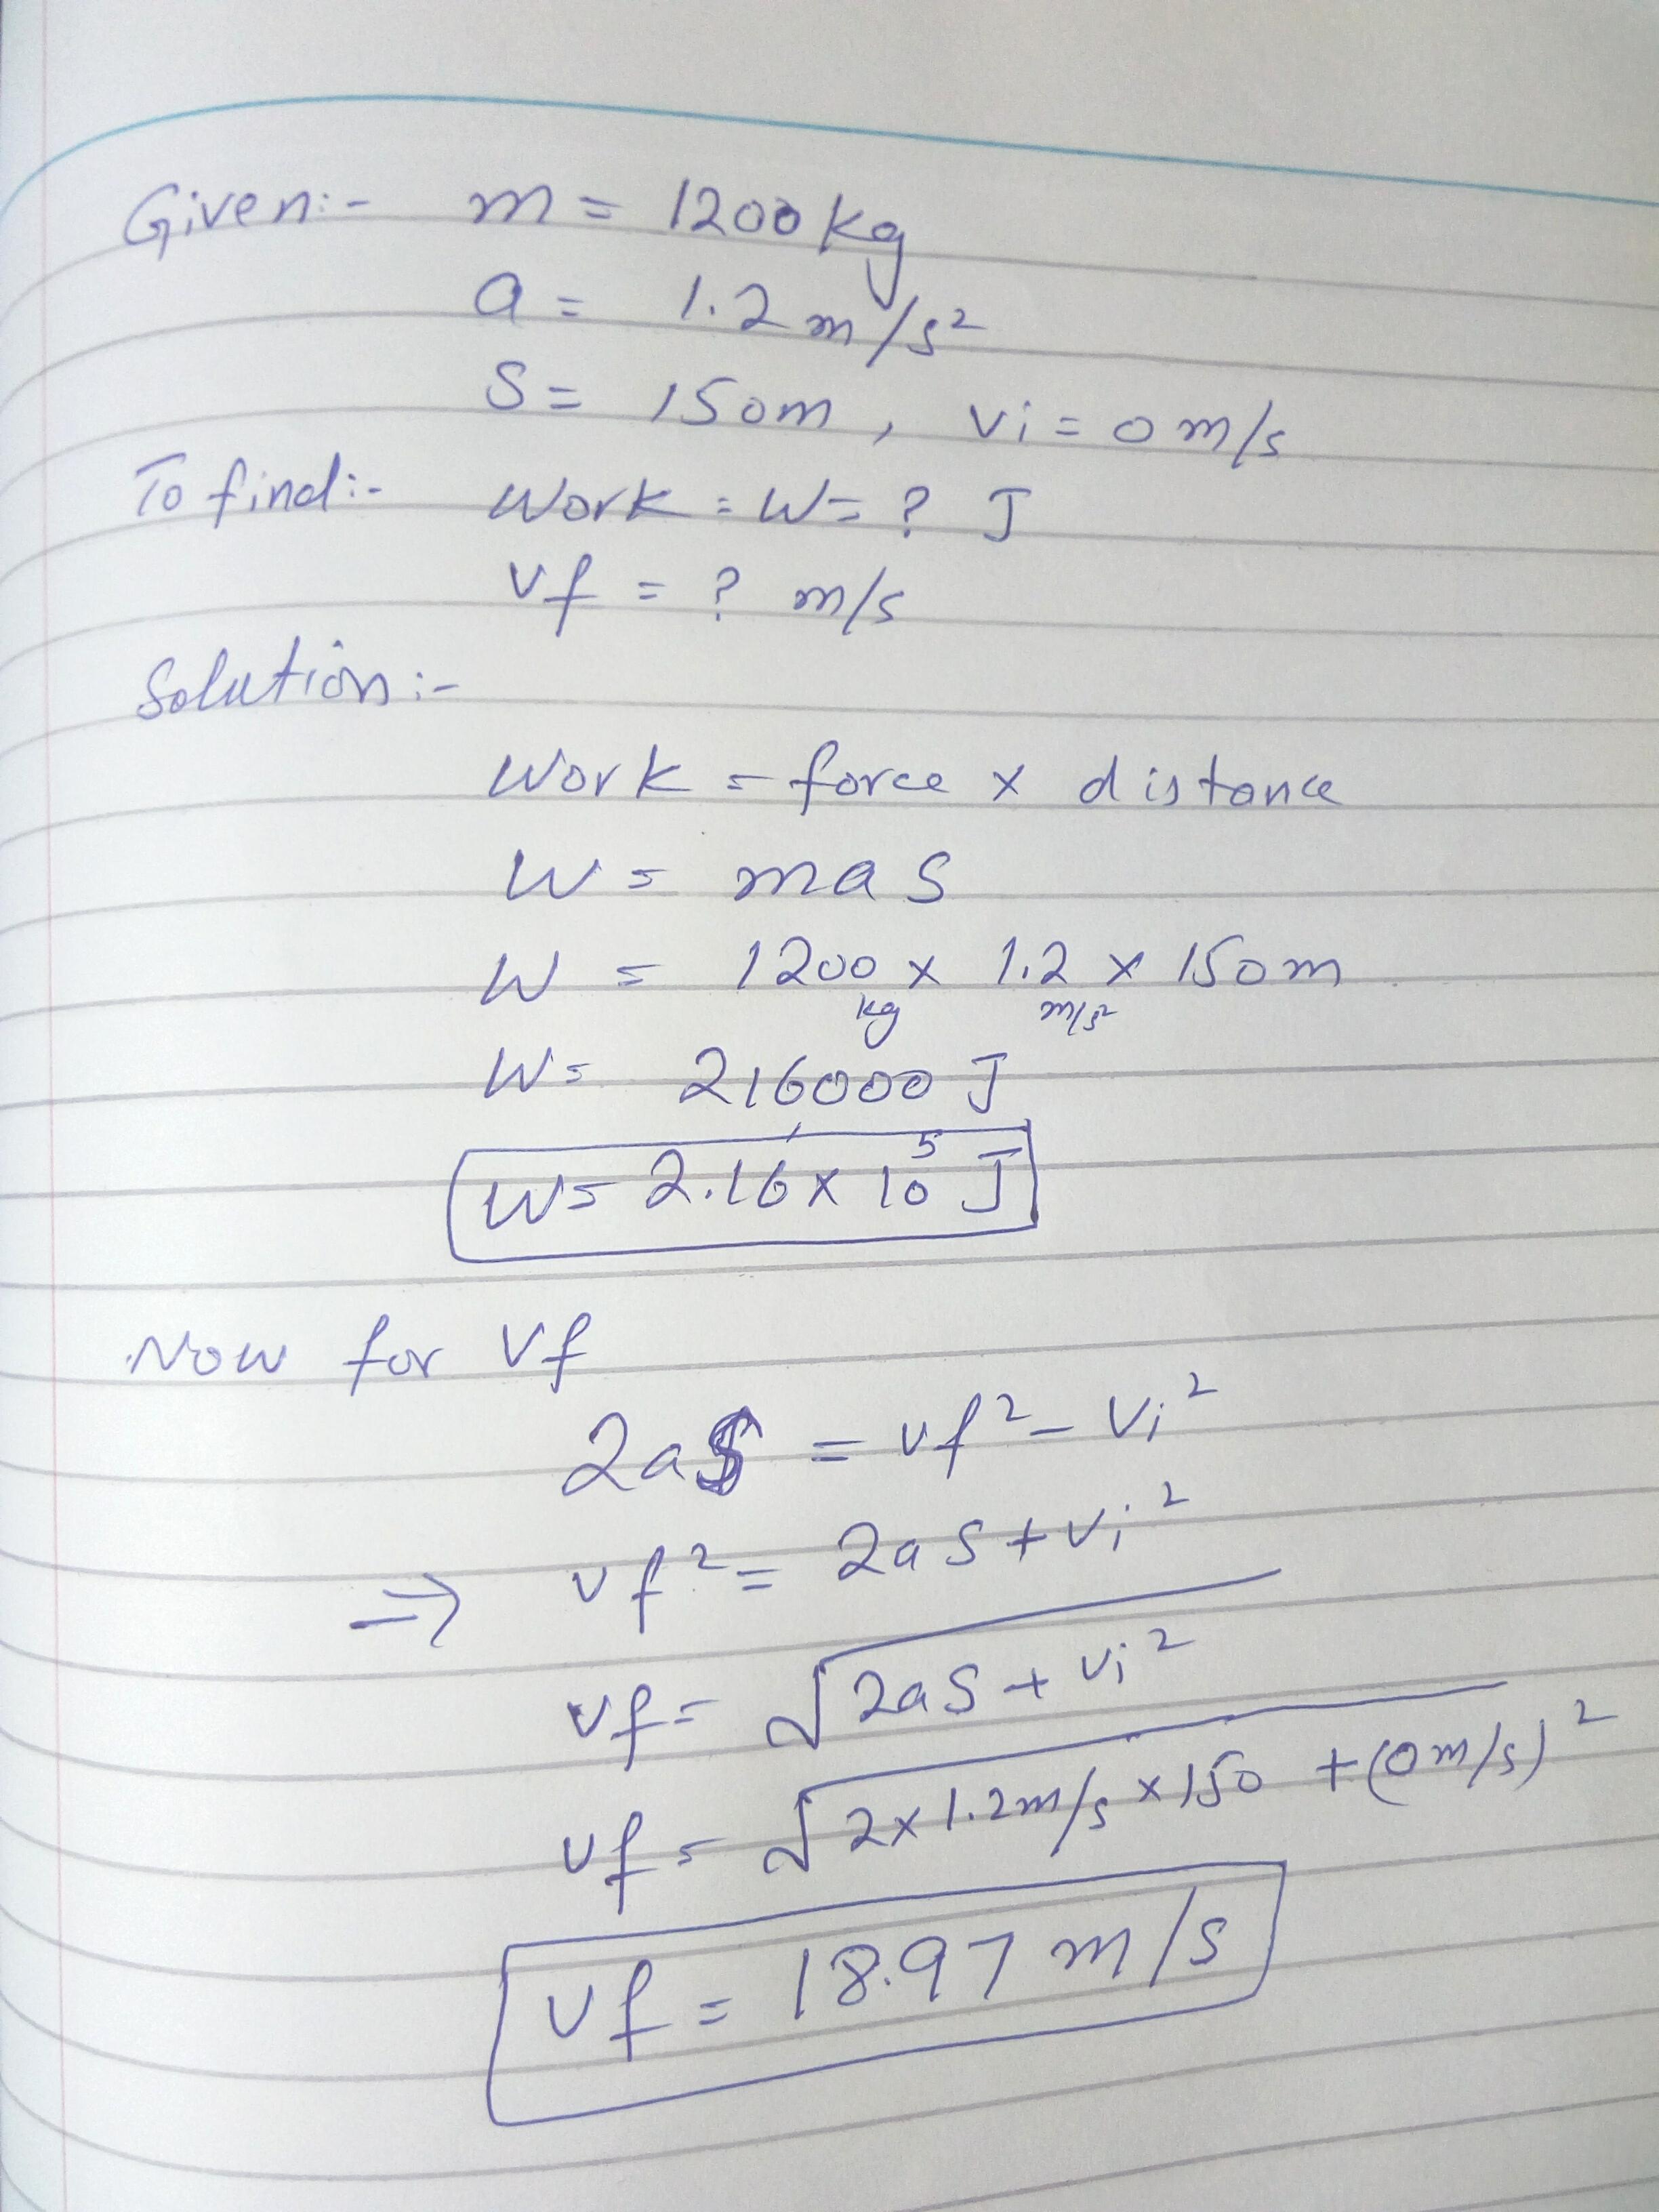 Given:- m = 1200 kg
a = 1.2 m/s²
S = 150m , vi = 0 m/s
To find:- Work = W = ? J
vf = ? m/s
Solution:-
Work = force x distance
W = mas
W = 1200 kg x 1.2 m/s² x 150m
W = 216000 J
W = 2.16 x 10⁵ J
Now for vf
2aS = vf² - vi²
⇒ vf² = 2aS + vi²
vf = √2aS + vi²
vf = √2x1.2m/s x 150 + (0m/s)²
vf = 18.97 m/s